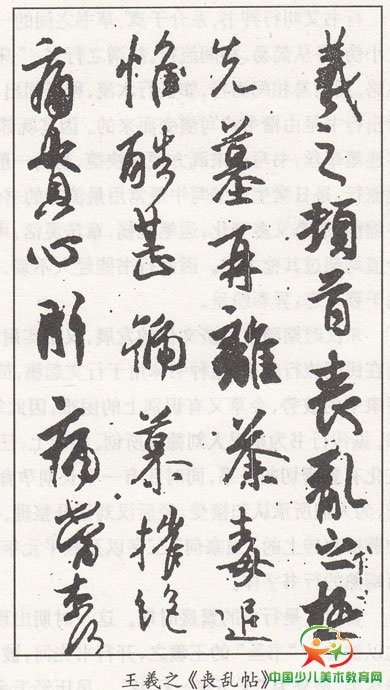 羲之頓首喪亂之極
先墓再離荼毒追
惟酷甚號慕摧絕
痛貫心肝痛當奈何
王羲之《丧乱帖》
中国少儿美术教育网